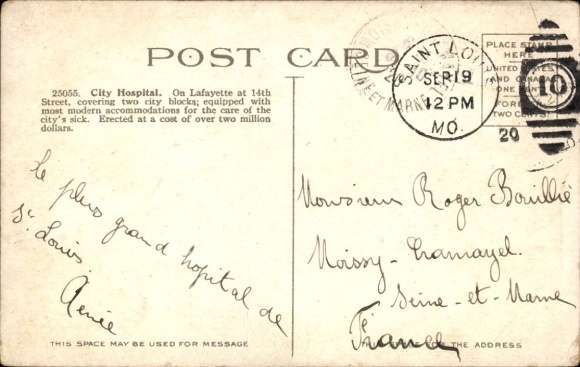 POST CARD
25055. City Hospital. On Lafayette at 14th
Street, covering two city blocks; equipped with
most modern accommodations for the care of the
city's sick. Erected at a cost of over two million
dollars.
PLACE STAMP
HERE
UNITED STATES
AND CANADA
ONE CENT
FOREIGN
TWO CENTS
SAINT LOUIS
SEP 19
12 PM
MO.
20
Le plus grand hopital de
St Louis.
Renée
Monsieur Roger Bouillié
Moissy-Cramayel.
Seine-et-Marne
France
THIS SPACE MAY BE USED FOR MESSAGE
FOR THE ADDRESS